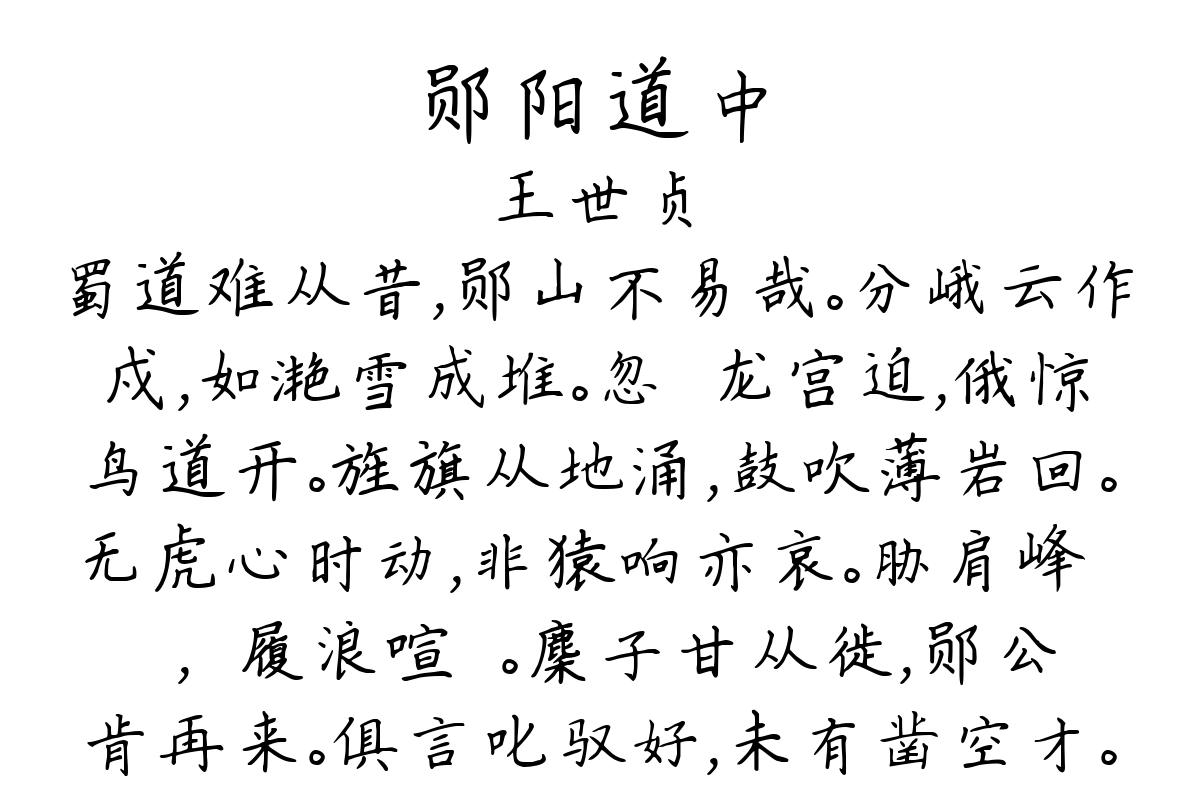 郧阳道中
王世贞
蜀道难从昔,郧山不易哉。分峨云作
戍,如滟雪成堆。忽 龙宫迫,俄惊
鸟道开。旌旗从地涌,鼓吹薄岩回。
无虎心时动,非猿响亦哀。胁肩峰
, 履浪喧 。麇子甘从徙,郧公
肯再来。俱言叱驭好,未有凿空才。